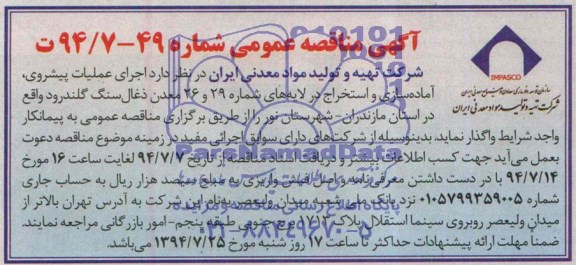 آگهی مناقصه عمومی شماره ۴۹-۹۴/۷ ت
IMPASCO
شرکت تهیه و تولید مواد معدنی ایران
شرکت تهیه و تولید مواد معدنی ایران در نظر دارد اجرای عملیات پیشروی،
آماده‌سازی و استخراج در لایه‌های شماره ۲۹ و ۲۶ معدن ذغال‌سنگ گلندرود واقع
در استان مازندران - شهرستان نور را از طریق برگزاری مناقصه عمومی به پیمانکار
واجد شرایط واگذار نماید، بدینوسیله از شرکت‌های دارای سوابق اجرائی مفید در زمینه موضوع مناقصه دعوت
بعمل می‌آید جهت کسب اطلاعات بیشتر و دریافت اسناد مناقصه از تاریخ ۹۴/۷/۷ لغایت ساعت ۱۶ مورخ
۹۴/۷/۱۴ با در دست داشتن معرفی‌نامه و اصل فیش واریزی به مبلغ هزار ریال به حساب جاری
شماره ۰۱۰۵۷۹۹۳۵۹۰۰۵ نزد بانک ملی شعبه میدان ولیعصر بنام این شرکت به آدرس تهران بالاتر از
میدان ولیعصر روبروی سینما استقلال پلاک ۱۷۱۳ برج جنوبی طبقه پنجم - امور بازرگانی مراجعه نمایند.
ضمناً مهلت ارائه پیشنهادات حداکثر تا ساعت ۱۷ روز شنبه مورخ ۱۳۹۴/۷/۲۵ می‌باشد.
ParsNamadData
۰۲۱-۸۸۳۴۹۶۷۰-۵